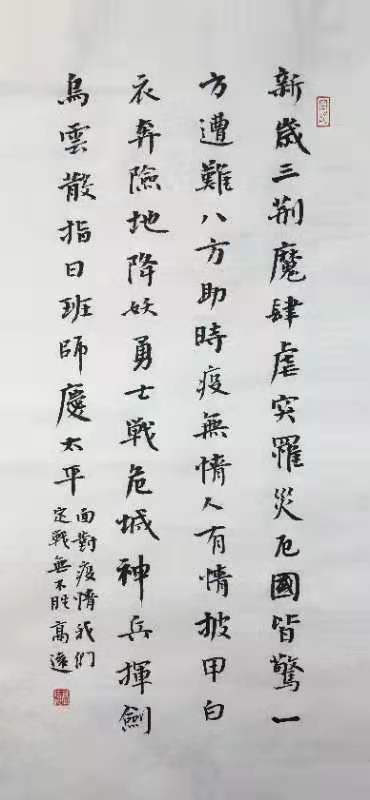 新歲三荆魔肆虐突罹災厄國皆驚一
方遭難八方助時疫無情人有情披甲白
衣奔險地降妖勇士戰危城神兵揮劍
烏雲散指日班師慶太平
面對疫情我們
定戰無不胜高遠